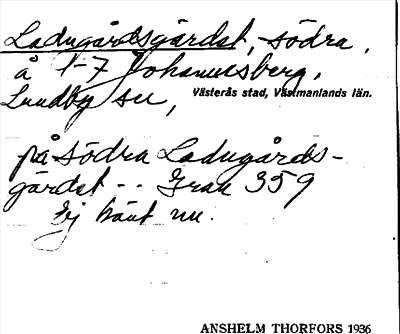 Ladugårdsgärdet, södra,
å 1-7 Johannesberg,
Lundby sn, Västerås stad, Västmanlands län.
på södra Ladugårds-
gärdet -- Grau 359
Ej känt nu.
ANSHELM THORFORS 1936